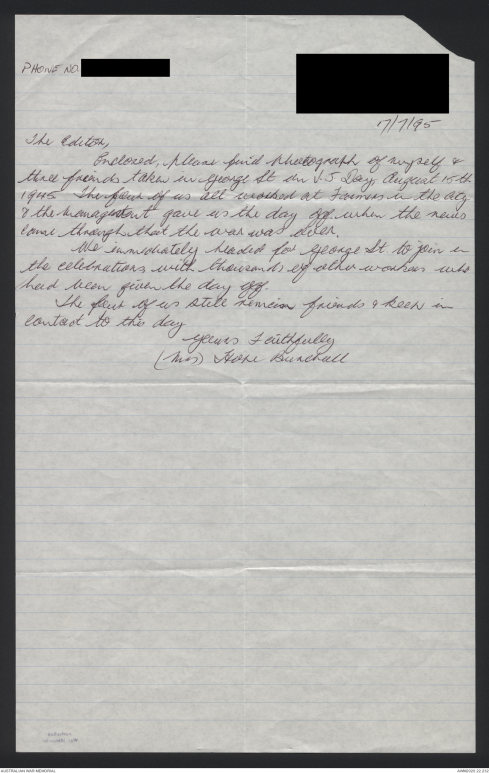 PHONE NO.
17/7/95
The Editor,
Enclosed, please find photograph of myself &
three friends taken in George St on V.J Day, August 15th
1945. The four of us all worked at Farmers in the city
& the management gave us the day off when the news
came through that the war was over.
We immediately headed for George St. to join in
the celebrations with thousands of other workers who
had been given the day off.
The four of us still remain friends & keep in
contact to this day
Yours Faithfully
(Mrs) Hope
AUSTRALIAN WAR MEMORIAL